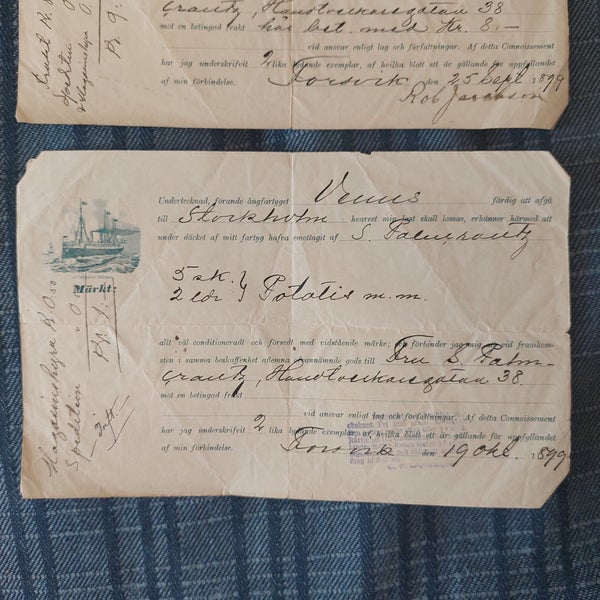 Grantz, Handtverkaregatan 38
mot en betingad frakt här bet. med Kr. 8.—
vid ansvar enligt lag och författningar. Af detta Connoissement
har jag underskrifvit 2 lika lydande exemplar, af hvilka blott ett är gällande för uppfyllandet
af min förbindelse. Forsvik den 25 Sept. 1899
Rob Jacobson
Undertecknad, förande ångfartyget Venus färdig att afgå
till Stockholm hvarest min last skall lossas, erkänner härmed att
under däcket af mitt fartyg hafva emottagit af S. Palmgrantz
Märkt:
5 sk. }
2 lår } Potatis m.m.
allt väl conditioneradt och försedt med vidstående märke; och förbinder jag mig att vid framkom-
sten i samma beskaffenhet aflemna ofvannämnde gods till Fru S. Palm-
grantz, Handtverkaregatan 38.
mot en betingad frakt
vid ansvar enligt lag och författningar. Af detta Connoissement
har jag underskrifvit 2 lika lydande exemplar, af hvilka blott ett är gällande för uppfyllandet
af min förbindelse. Forsvik den 19 Okt. 1899
Magasinshyra K. 0.50
Spedition